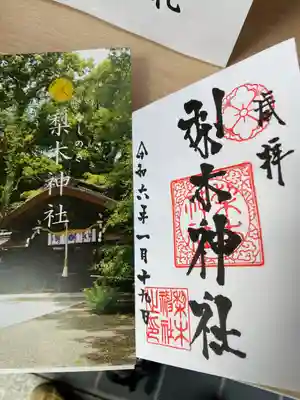 札
なしのき
梨木神社
奉拝
梨木神社
令和六年一月十九日
梨木
神社
之印